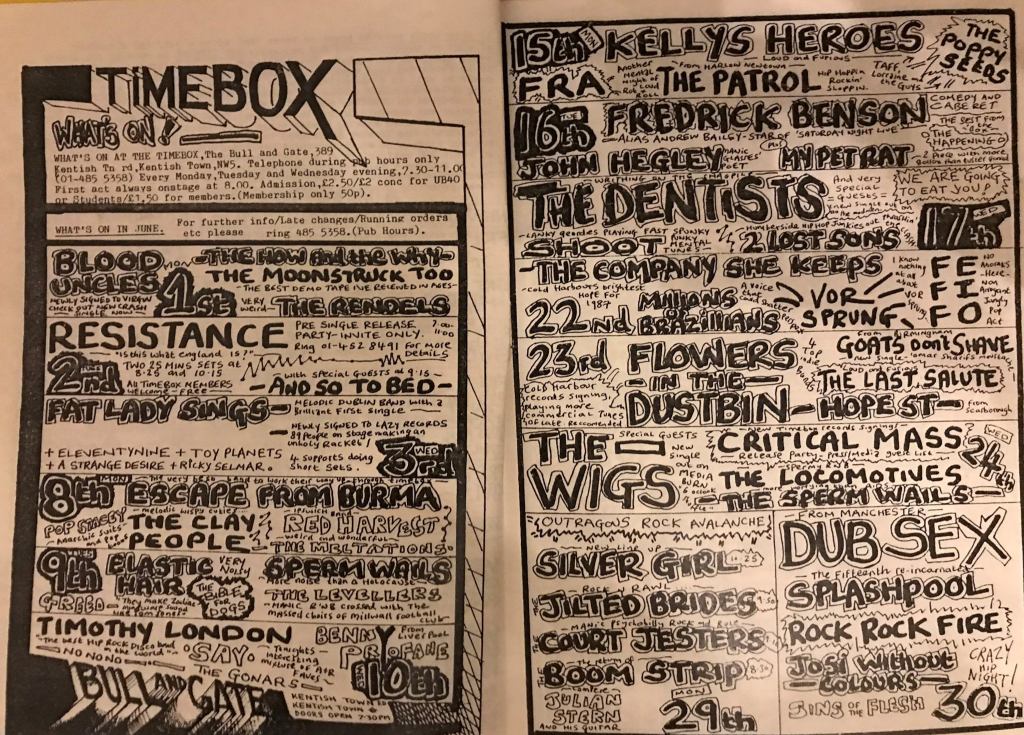 TIMEBOX
WHAT'S ON!
WHAT'S ON AT THE TIMEBOX, The Bull and Gate, 389
Kentish Tn rd, Kentish Town, NW5. Telephone during pub hours only
(01-485 5358) Every Monday, Tuesday and Wednesday evening, 7.30-11.00
First act always onstage at 8.00. Admission, £2.50/£2 conc for UB40
or Students/£1.50 for members. (Membership only 50p).
WHAT'S ON IN JUNE.
For further info/Late changes/Running orders
etc please ring 485 5358. (Pub Hours).
BLOOD UNCLES
MON
1st
NEWLY SIGNED TO VIRGIN
CHECK OUT 'CRASH'
SINGLE NOW
-THE HOW and the WHY-
THE MOONSTRUCK TOO
-THE BEST DEMO TAPE I'VE REVIEWED IN AGES-
VERY weird- THE RENDELS
RESISTANCE
PRE SINGLE RELEASE
PARTY-INVITE ONLY.
Ring 01-452 8491 for MORE
DETAILS
7.00-
11.00
"is this what england is?"
2nd
TWO 25 MINS SETS at
8.25 and 10.15
All TIMEBOX MEMBERS
WELCOME - FREE -
-with SPECIAL GUESTS at 9.15-
-AND SO TO BED-
FAT LADY SINGS-
MELODIC DUBLIN BAND with a
Brilliant First Single
NEWLY SIGNED TO LAZY RECORDS
8 people on stage making an
unholy racket!
+ ELEVENTYNINE + TOY PLANETS
+ A STRANGE DESIRE + RICKY SELMAR.
4 supports doing
short sets.
3rd
WED
8th
MON
ESCAPE FROM BURMA
THE CLAY PEOPLE
RED HARVEST
weird and wonderful
THE MELTATIONS
9th
TUES
ELASTIC HAIR
VERY NOISY
SPERM WAILS
More noise than a Holocaust
THE LEVELLERS
-MANIC R'n'B crossed with the
massed choirs of millwall football
club-
GREED
TIMOTHY LONDON
"The best Hip Rock Disco band
in the world"
-NO NO NO-
"SAY"
THE GONARS
BENNY PROFANE
From Liverpool
10th
BULL AND GATE
KENTISH TOWN
KENTISH TOWN
DOORS OPEN 7.30PM
15th
MON
KELLYS HEROES
-LOUD and FURIOUS-
THE POPPY SEEDS
FRA
Another
Mental
night of
Loud
Rock n
Roll
-From HARLOW NEWTOWN-
THE PATROL
HIP HOPPIN
Rockin'
Sloppin.
TAFF
Lorraine
the Guys
16th
FREDRICK BENSON
-ALIAS ANDREW BAILEY-STAR OF 'SATURDAY NIGHT LIVE'-
COMEDY AND
CABERET
JOHN HEGLEY
PLUS
MY PET RAT
THE HAPPENING
THE DENTISTS
And very
Special
GUESTS
WE ARE GOING
TO EAT YOU!
17th
WED
-LANKY geordies PLAYING FAST SPUNKY
MENTAL TUNES
SHOOT
2 LOST SONS
-THE COMPANY SHE KEEPS
-Cold Harbours brightest
Hope for
1987
22nd
Millions of BRAZILLIANS
VOR SPRUNG
I know
nothing
at all
about
VOR
Sprung
FE FI FO
No
Anoraks
-Here-
No
Arrogant
Jangly
Pop
Act
23rd
FLOWERS
-IN THE-
DUSTBIN
Cold Harbour
records signing,
playing more
commercial tunes
of late. Reccomended
From Birmingham
GOATS Don't SHAVE
-LOUD and FURIOUS-
THE LAST SALUTE
-HOPE ST-
from
Scarborough
THE WIGS
Special GUESTS
New
Single
out on
MEDIA
BURN
-New Timebox records signing-
CRITICAL MASS
Release Party. Press/media guest list
24th
WED
THE LOCOMOTIVES
THE SPERM WAILS-
OUTRAGOUS ROCK AVALANCHE
-New line up-
SILVER GIRL
Rock n Rawl
JILTED BRIDES
-MANIC Psychobilly Rock and Role-
COURT JESTERS
-The return of-
BOOM STRIP
8.30
JULIAN STERN
AND HIS GUITAR
MON
29th
-FROM MANCHESTER-
DUB SEX
The Fifteenth re-incarnation
SPLASHPOOL
ROCK ROCK FIRE
Josi Without
-COLOURS-
CRAZY
HIP
NIGHT!
SINS OF THE FLESH
30th